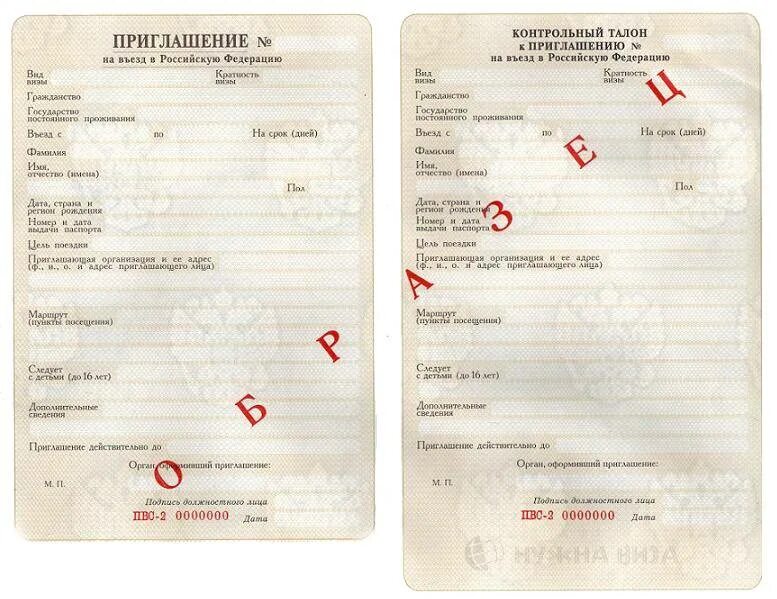 ПРИГЛАШЕНИЕ №
на въезд в Российскую Федерацию
Вид визы
Кратность визы
Гражданство
Государство
постоянного проживания
Въезд с по На срок (дней)
Фамилия
Имя,
отчество (имена)
Пол
Дата, страна и
регион рождения
Номер и дата
выдачи паспорта
Цель поездки
Приглашающая организация и ее адрес
(ф., и., о. и адрес приглашающего лица)
Маршрут
(пункты посещения)
Следует
с детьми (до 16 лет)
Дополнительные
сведения
Приглашение действительно до
Орган, оформивший приглашение:
М. П.
Подпись должностного лица
ПВС-2 0000000 Дата
КОНТРОЛЬНЫЙ ТАЛОН
к ПРИГЛАШЕНИЮ №
на въезд в Российскую Федерацию
Вид визы
Кратность визы
Гражданство
Государство
постоянного проживания
Въезд с по На срок (дней)
Фамилия
Имя,
отчество (имена)
Пол
Дата, страна и
регион рождения
Номер и дата
выдачи паспорта
Цель поездки
Приглашающая организация и ее адрес
(ф., и., о. и адрес приглашающего лица)
Маршрут
(пункты посещения)
Следует
с детьми (до 16 лет)
Дополнительные
сведения
Приглашение действительно до
Орган, оформивший приглашение:
М. П.
Подпись должностного лица
ПВС-2 0000000 Дата
ОБРАЗЕЦ